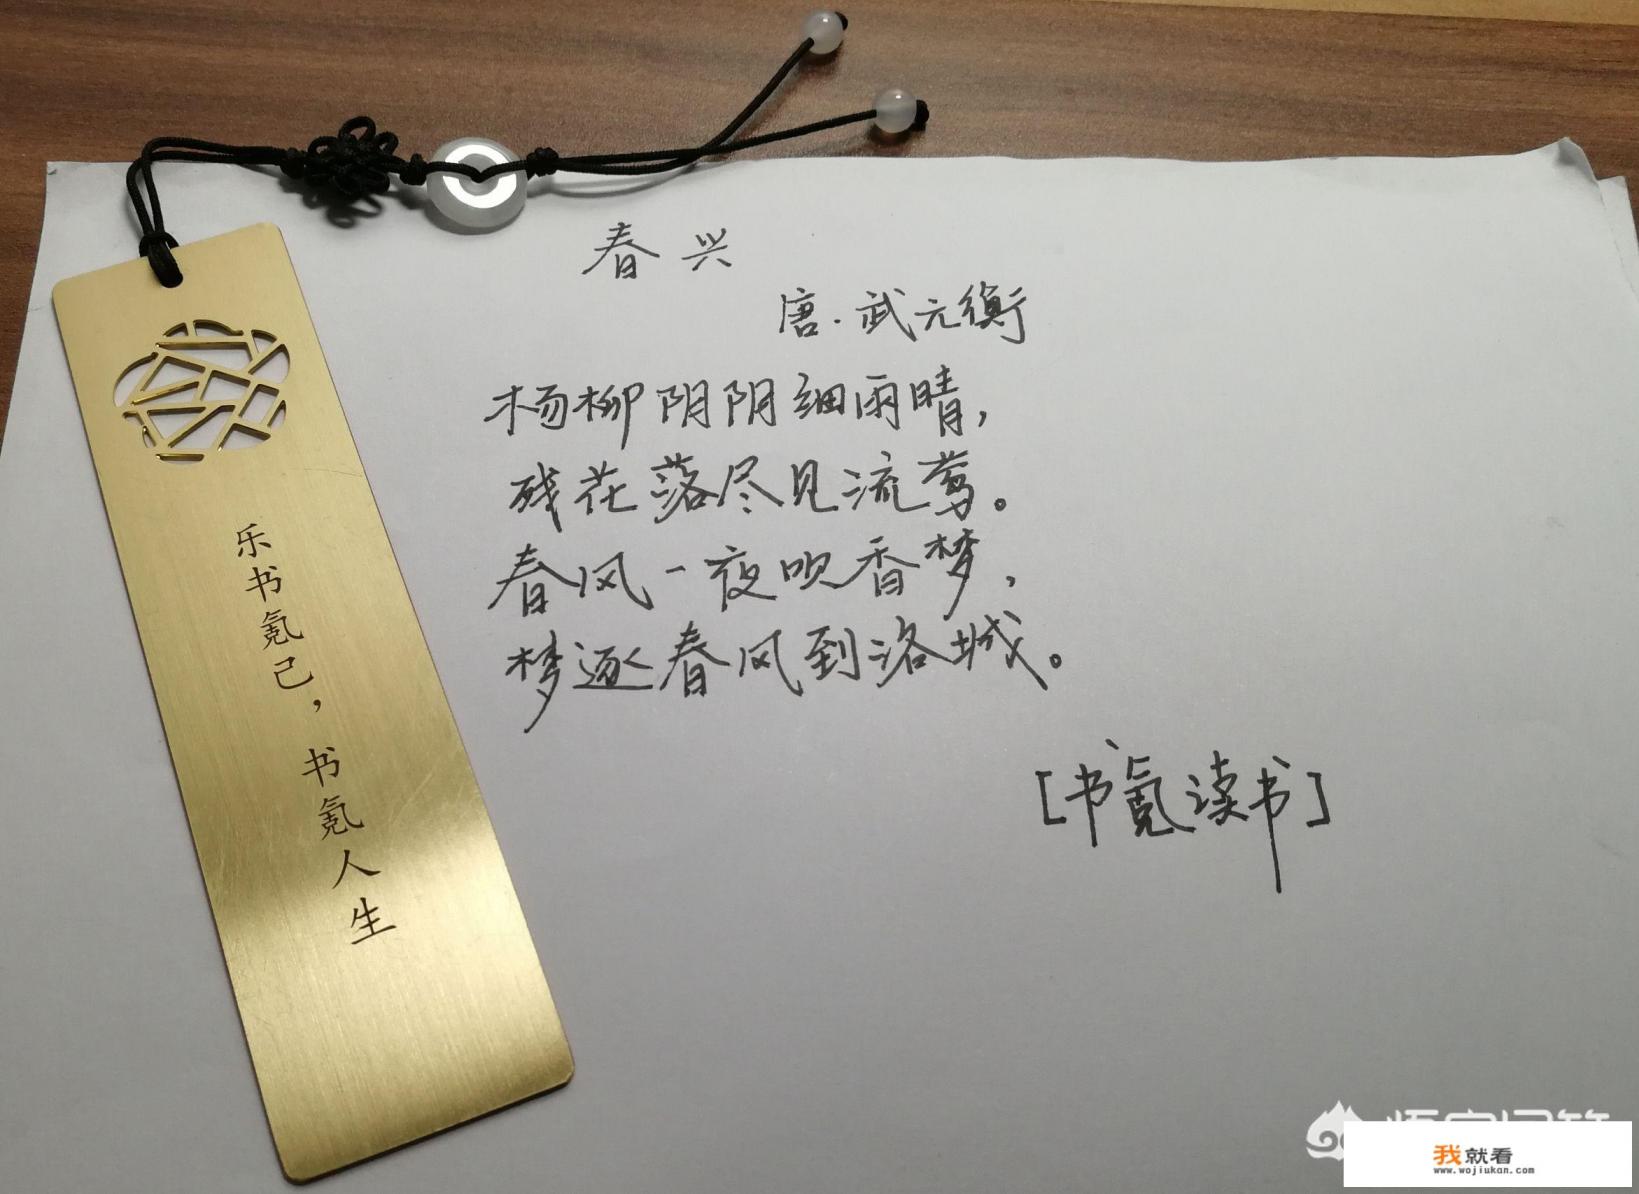 春兴
唐·武元衡
杨柳阴阴细雨晴，
残花落尽见流莺。
春风一夜吹香梦，
梦逐春风到洛城。
[书氪读书]
乐书氪己，书氪人生
悟空问答
我就看
www.wojiukan.com